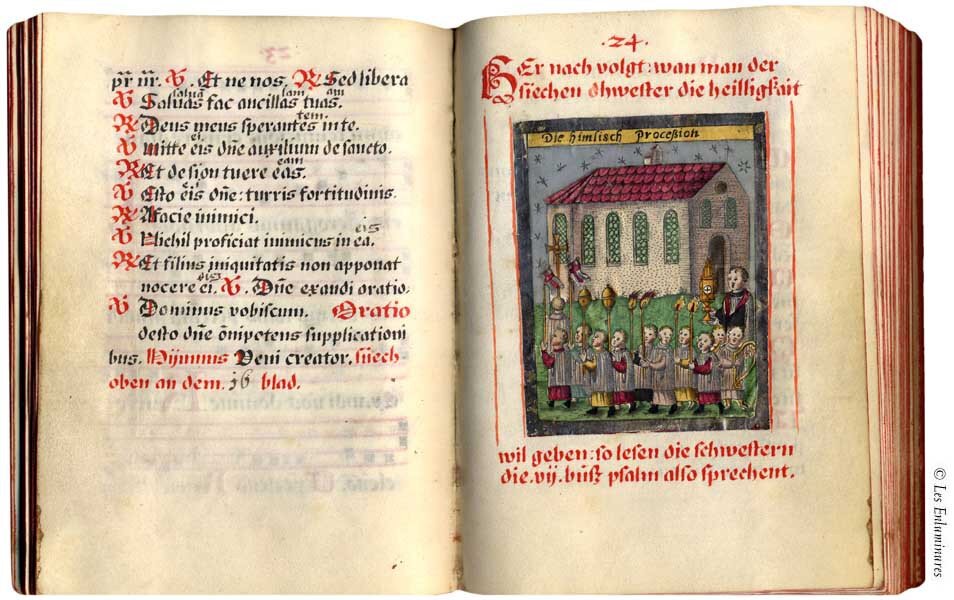 pr̄ nr̄. V. Et ne nos. R Sed libera
V Saluas fac ancillas tuas.
saluā lam am
R Deus meus sperantes in te.
tem
V Mitte eis dn̄e auxilium de sancto.
ei
R Et de sion tuere eas.
eam
V Esto eis dn̄e: turris fortitudinis.
ei
R A facie inimici.
V Nichil proficiat inimicus in ea.
eis
R Et filius iniquitatis non apponat
nocere ei. V. Dn̄e exaudi oratio.
eis
V Dominus vobiscum. Oratio
desto dn̄e om̄ipotens supplicationi
bus. Hijmnus Veni creator. suech
oben an dem. 16 blad.
.24.
HEr nach volgt: wan man der
siechen schwester die heilligkait
Die himlisch Proceßion
wil geben: so lesen die schwestern
die. vij. buͤß psalm also sprechent.
© Les Enluminures